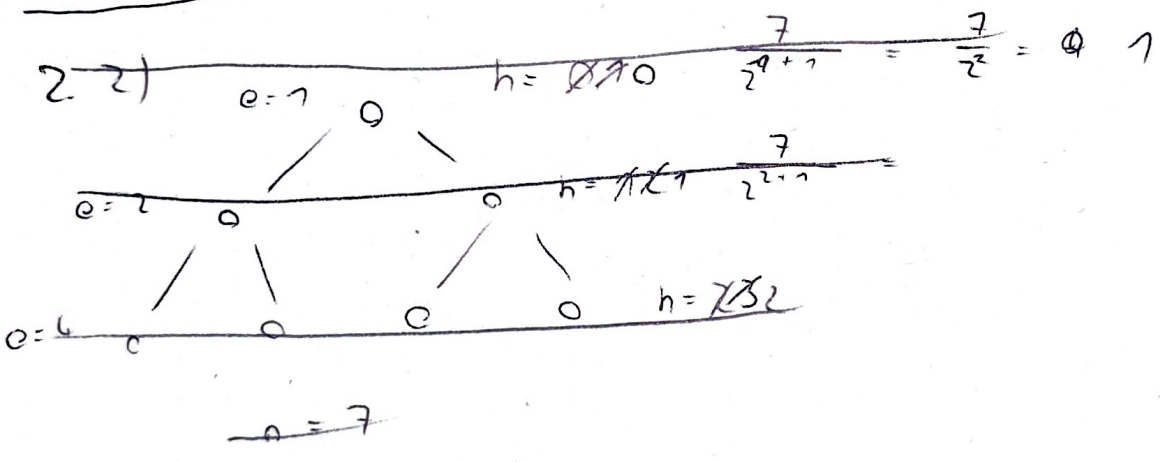 2.2)
e=1 h= 0 7/2^(0+1) = 7/2^2 = 1
e=2 h= 1 7/2^(2+1) =
e=4 h= 2
n = 7